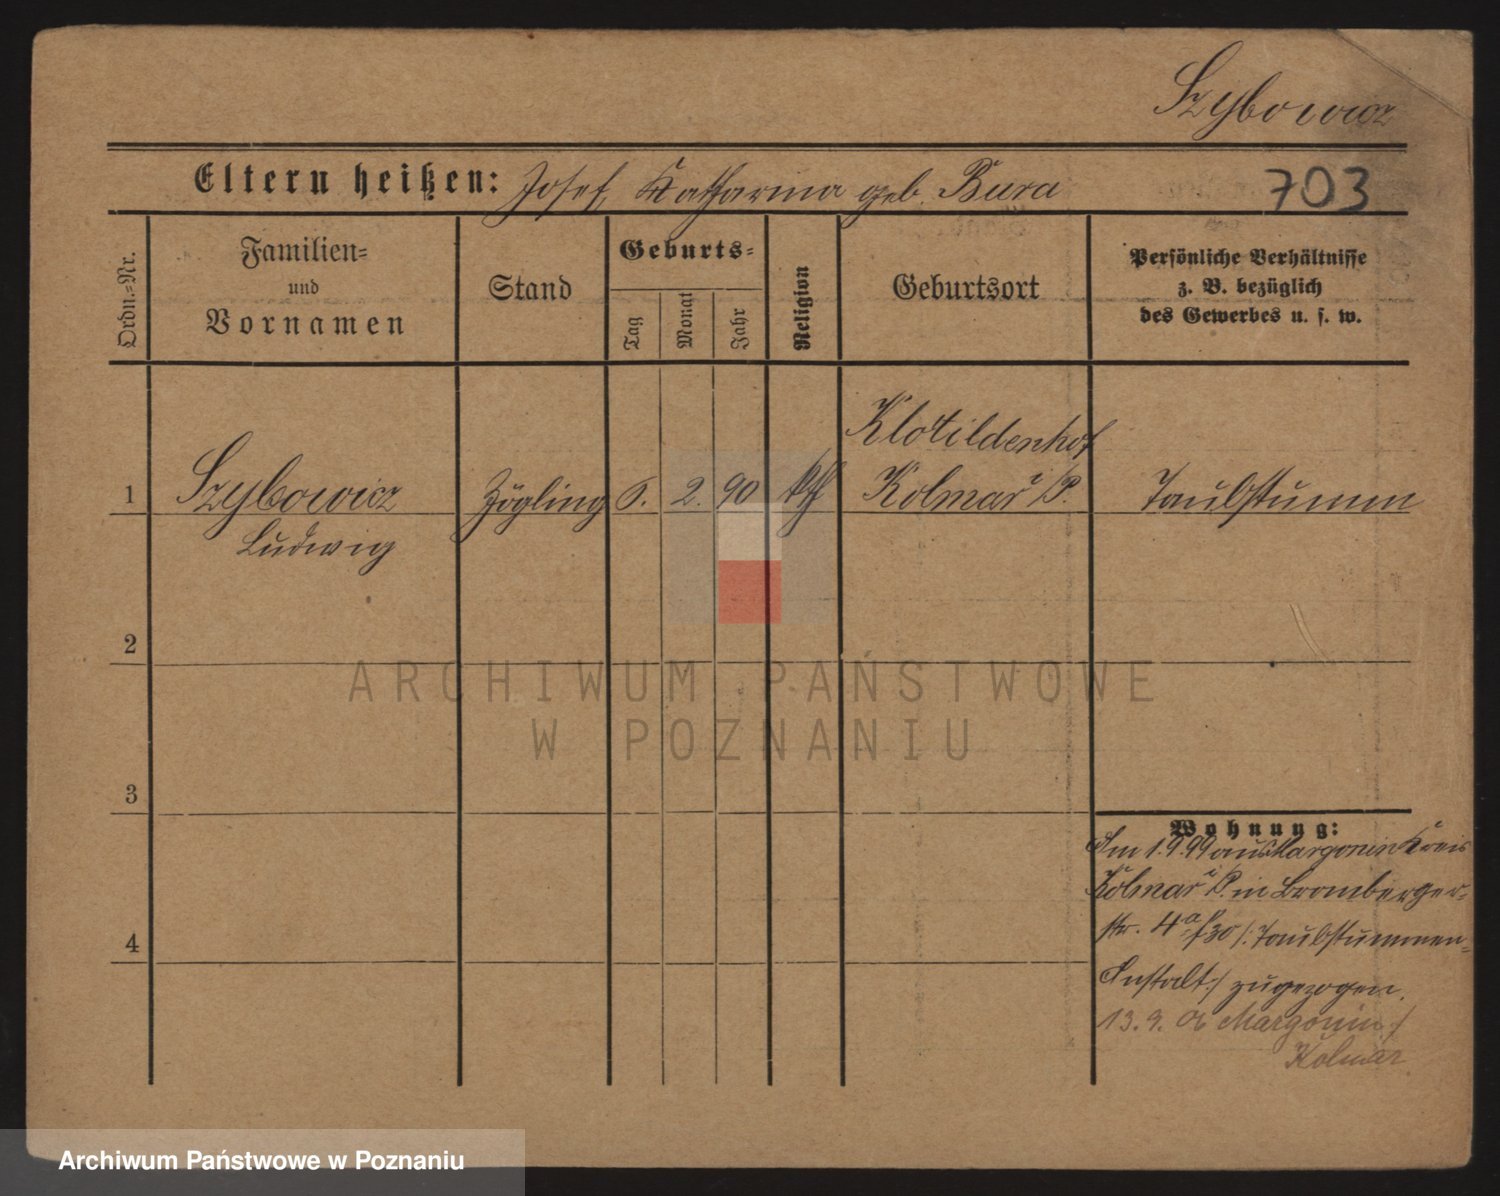 Szybowicz
Eltern heißen: Josef, Katharina geb. Bura
703
Ordn.=Nr.
Familien=
und
Vornamen
Stand
Geburts=
Tag
Monat
Jahr
Religion
Geburtsort
Persönliche Verhältnisse
z. B. bezüglich
des Gewerbes u. s. w.
Klotildenhof
1 Szybowicz Zögling 6. 2. 90 kth Kolmar i/P. Taubstumm
Ludwig
2
3
4
Wohnung:
Am 1.9.99 aus Margonin Kreis
Kolmar i/P. in Bromberger=
str. 4a /: Taubstummen=
Anstalt :/ zugezogen.
13.9. 06 Margonin /
Kolmar
ARCHIWUM PAŃSTWOWE
W POZNANIU
Archiwum Państwowe w Poznaniu